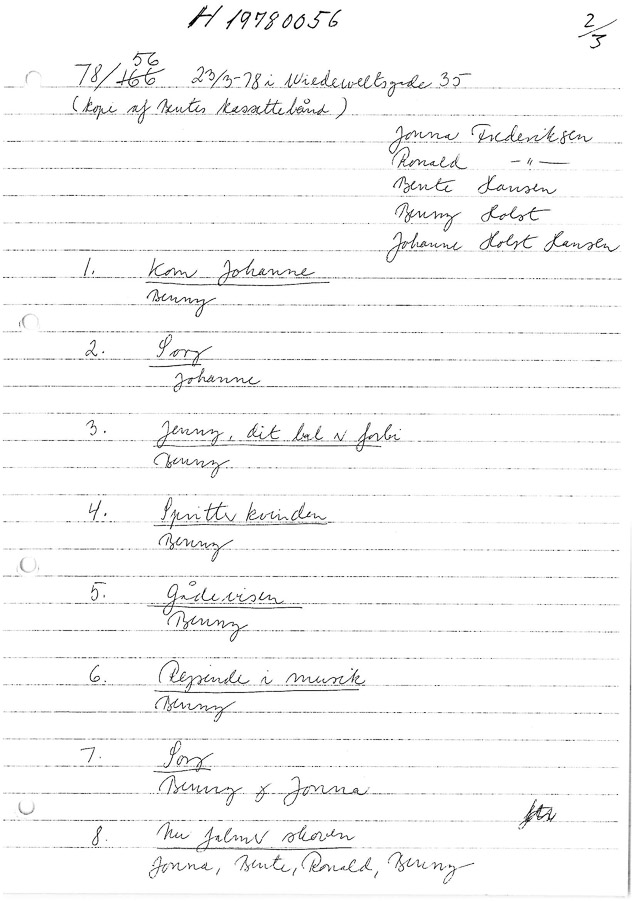 H 19780056
2/3
56
78/166 23/3-78 i Wiedeweltsgade 35
(Kopi af Bentes kassettebånd)
Jonna Frederiksen
Ronald —"—
Bente Hansen
Benny Holst
Johanne Holst Hansen
1. Kom Johanne
Benny
2. Sorg
Johanne
3. Jenny, dit bal er forbi
Benny
4. Spritterkvinden
Benny
5. Gådevisen
Benny
6. Rejsende i musik
Benny
7. Sorg
Benny & Jonna
8. Nu falmer skoven
Jonna, Bente, Ronald, Benny